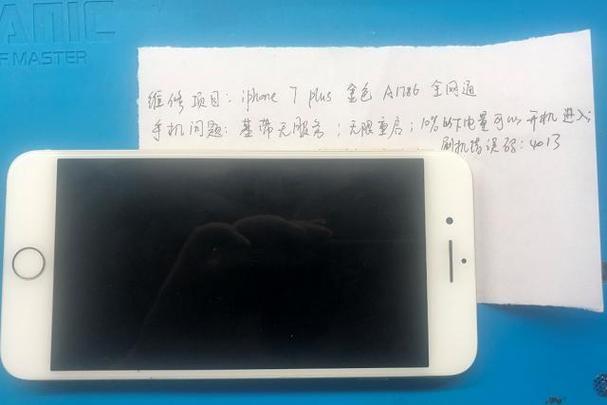 ANIC
F MASTER
维修项目：iphone 7 plus 金色 A1786 全网通
手机问题：基带无服务；无限重启；10%以下电量可以开机进入；
刷机错误码：4013